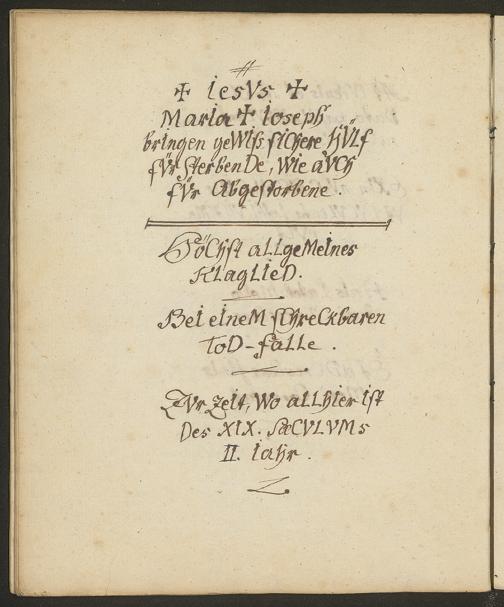 ✠ IesVs ✠
MarIa ✠ Ioseph
brIngen geWIss sIChere HÜLf
fÜr SterbenDe, WIe aÜCh
fÜr Abgestorbene.
HöChst aLLgeMeInes
KLagLIeD.
BeI eIneM sChreCkbaren
ToD-faLLe.
ZVr zeIt, Wo aLLhIer Ist
Des XIX. SæCVLVMs
II. Iahr.